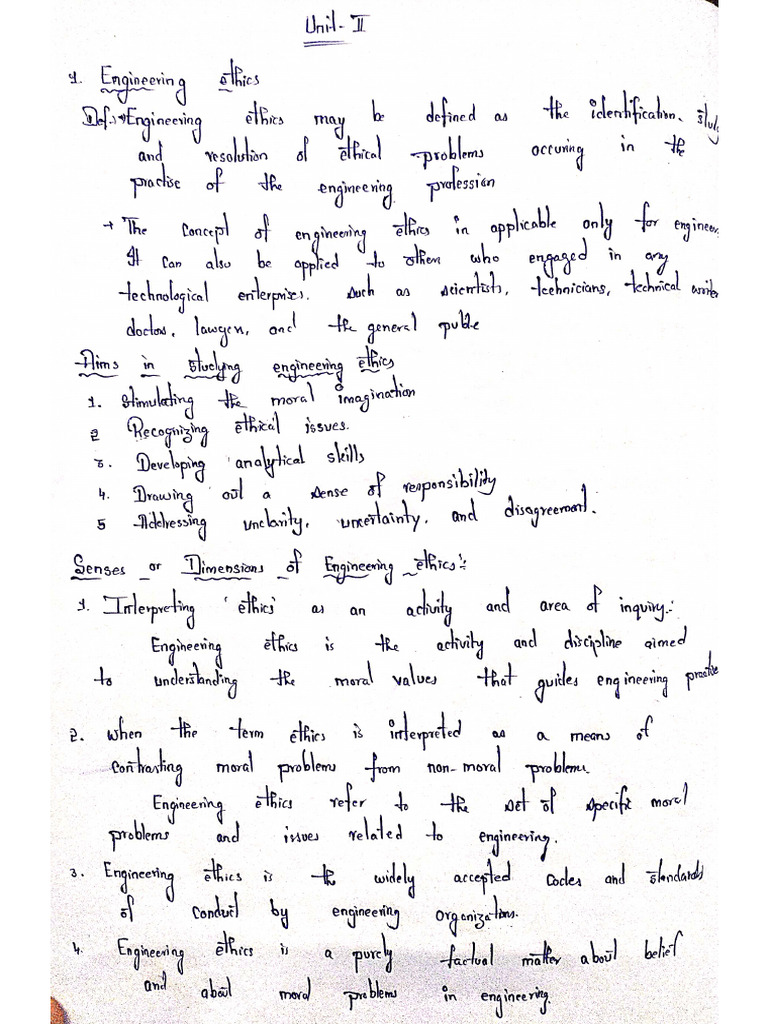 Unit- II
1. Engineering ethics
Def:→ Engineering ethics may be defined as the identification, study
and resolution of ethical problems occuring in the
practise of the engineering profession
→ The concept of engineering ethics in applicable only for engineer
It can also be applied to others who engaged in any
technological enterprises. such as scientists, technicians, technical writer
doctors, lawyers, and the general public
Aims in studying engineering ethics
1. Stimulating the moral imagination
2 Recognizing ethical issues.
3. Developing analytical skills
4. Drawing out a sense of responsibility
5 Addressing unclarity, uncertainty, and disagreement.
Senses or Dimensions of Engineering ethics:
1. Interpreting 'ethics' as an activity and area of inquiry:
Engineering ethics is the activity and discipline aimed
to understanding the moral values that guides engineering practise
2. when the term ethics is interpreted as a means of
contrasting moral problems from non-moral problems.
Engineering ethics refer to the set of specific moral
problems and issues related to engineering.
3. Engineering ethics is the widely accepted codes and standards
of conduct by engineering organizations.
4. Engineering ethics is a purely factual matter about belief
and about moral problems in engineering.